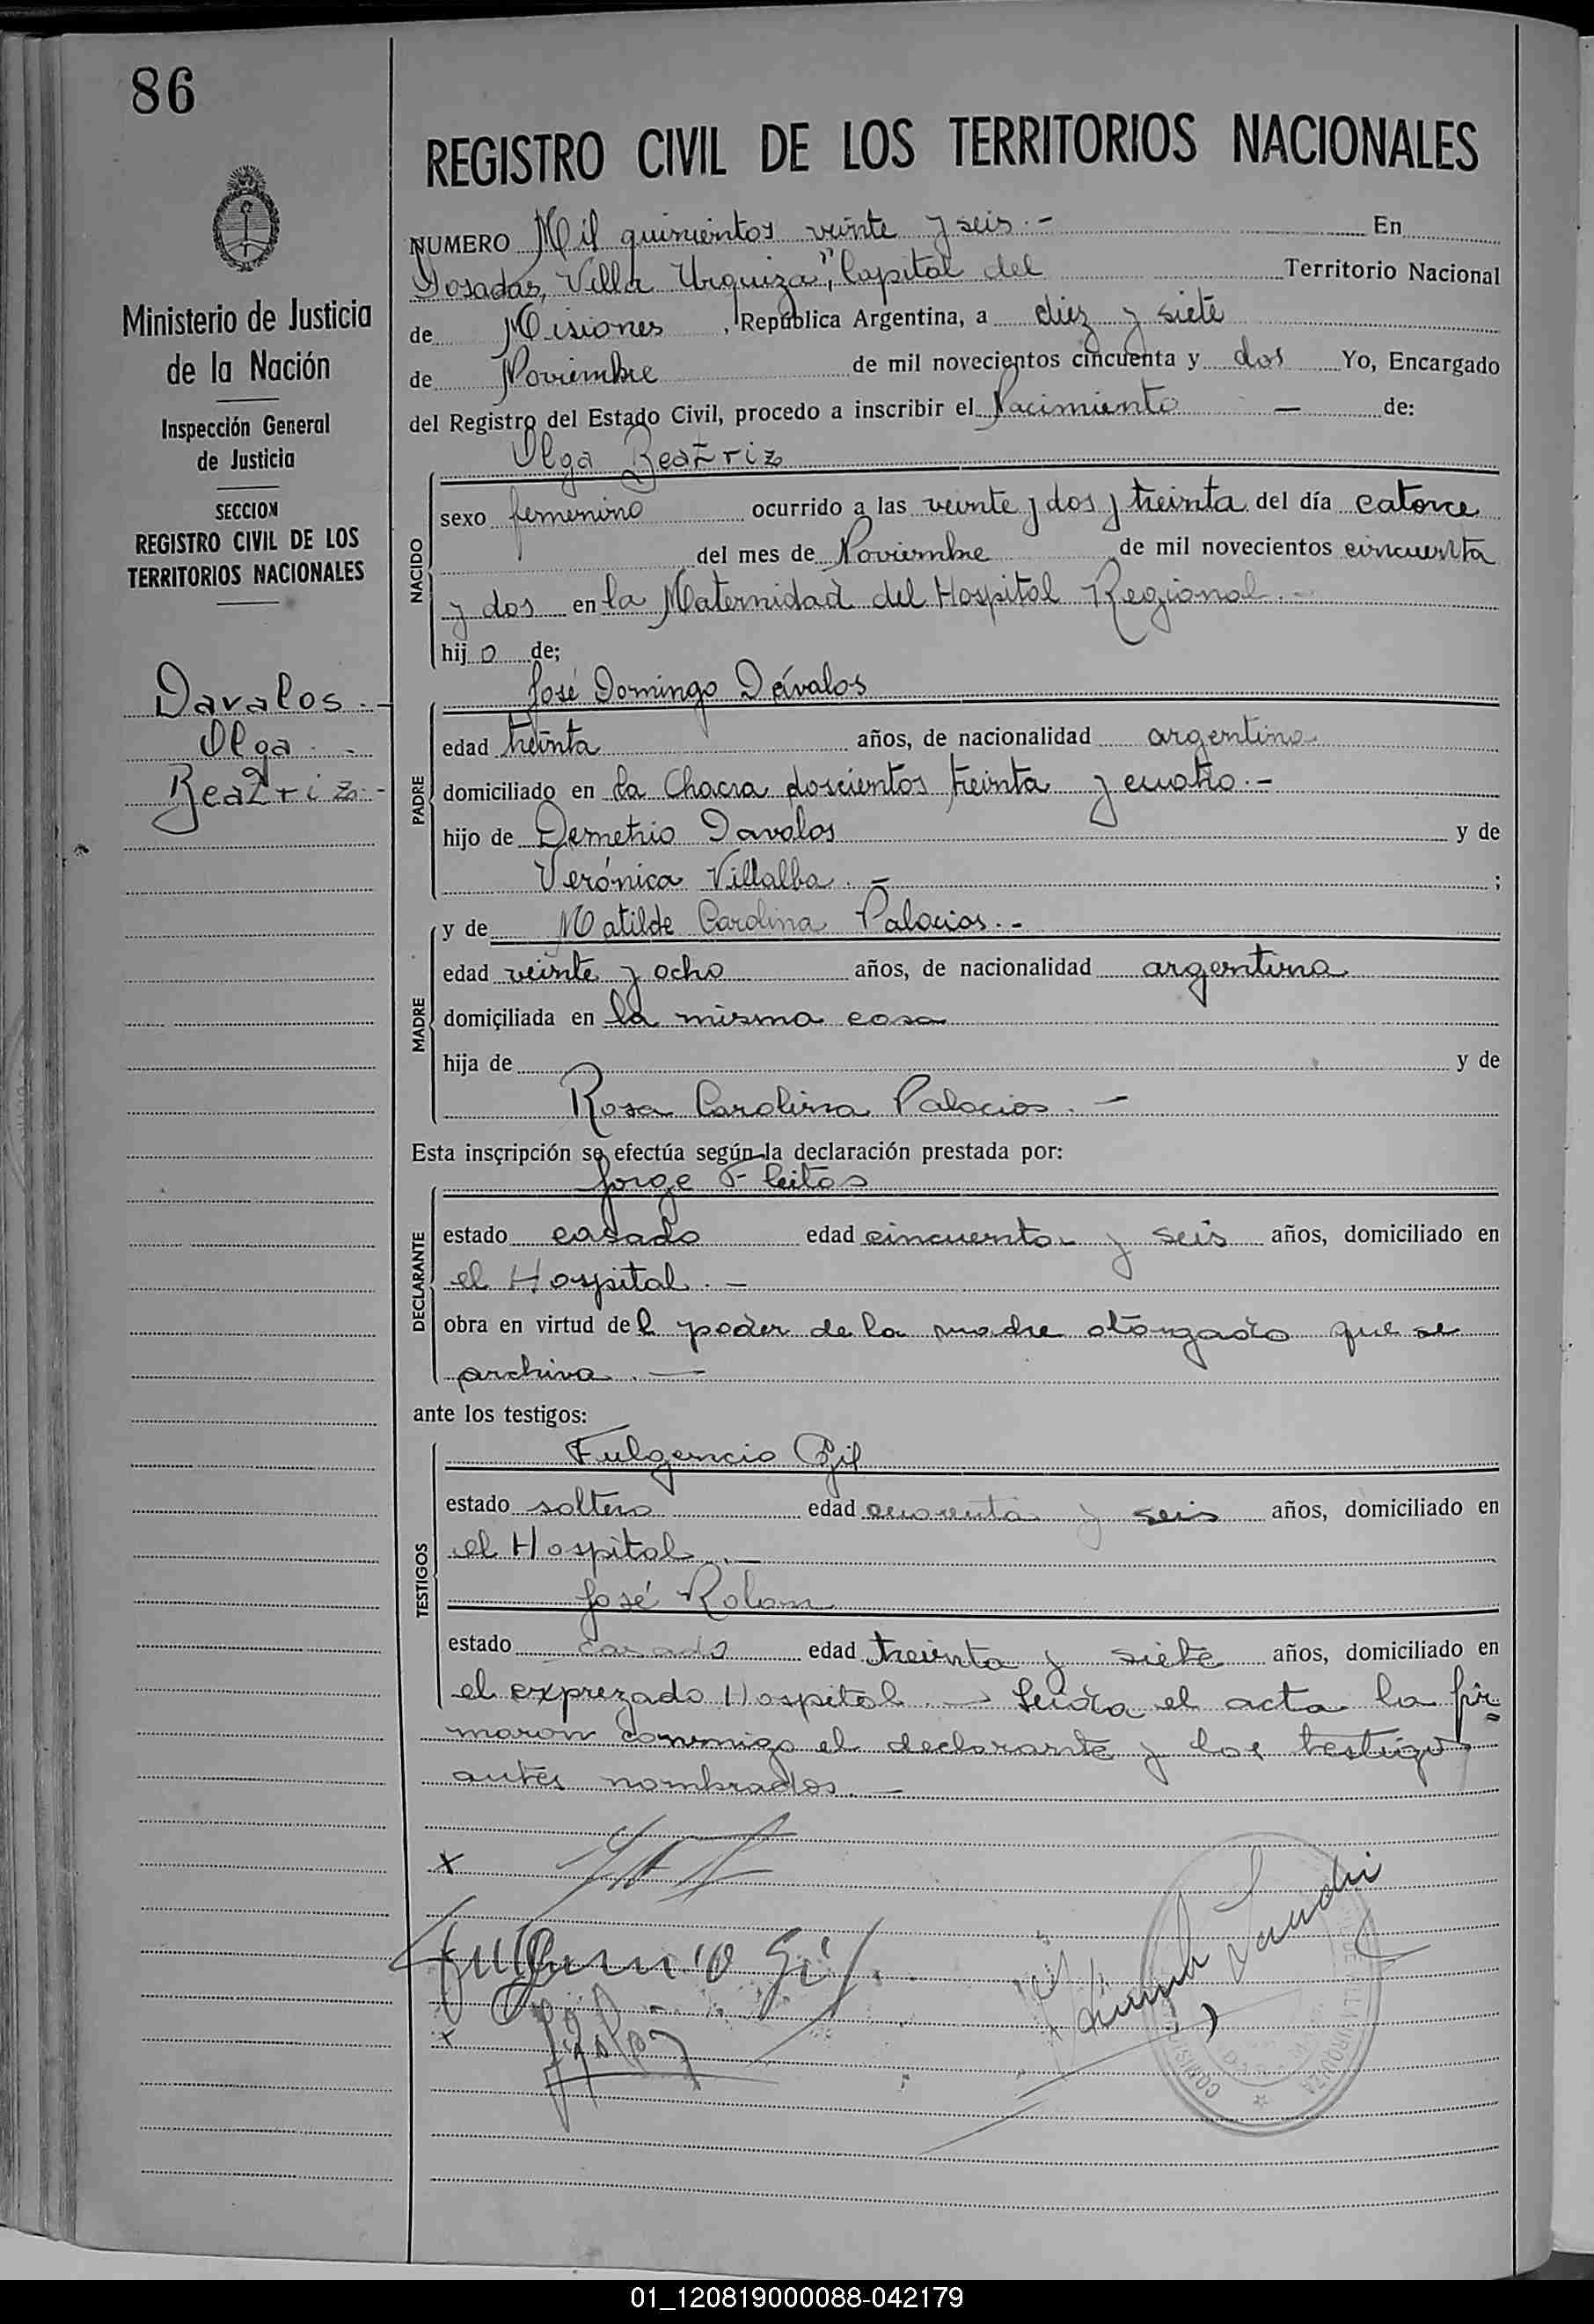 86
REGISTRO CIVIL DE LOS TERRITORIOS NACIONALES
Ministerio de Justicia
de la Nación
Inspección General
de Justicia
SECCION
REGISTRO CIVIL DE LOS
TERRITORIOS NACIONALES
Davalos.-
Olga.-
Beatriz.-
NUMERO Mil quinientos veinte y seis.- En
Posadas, Villa Urquiza", Capital del Territorio Nacional
de Misiones, República Argentina, a diez y siete
de Noviembre de mil novecientos cincuenta y dos Yo, Encargado
del Registro del Estado Civil, procedo a inscribir el Nacimiento — de:
Olga Beatriz
NACIDO
sexo femenino ocurrido a las veinte y dos y treinta del día catorce
del mes de Noviembre de mil novecientos cincuenta
y dos en la Maternidad del Hospital Regional.-
hijo de;
José Domingo Dávalos
PADRE
edad treinta años, de nacionalidad argentina
domiciliado en la Chacra doscientos treinta y cuatro.-
hijo de Demetrio Davalos y de
Verónica Villalba.- ;
y de Matilde Carolina Palacios.-
MADRE
edad veinte y ocho años, de nacionalidad argentina
domiciliada en la misma casa
hija de y de
Rosa Carolina Palacios.-
Esta inscripción se efectúa según la declaración prestada por:
Jorge Fleitas
DECLARANTE
estado casado edad cincuenta y seis años, domiciliado en
el Hospital.-
obra en virtud del poder de la madre otorgado que se
archiva.—
ante los testigos:
Fulgencio Gil
TESTIGOS
estado soltero edad cuarenta y seis años, domiciliado en
el Hospital.-
José Rolon
estado casado edad treinta y siete años, domiciliado en
el exprezado Hospital.- Leida el acta la fir=
maron conmigo el declarante y los testigos
antes nombrados.-
x
Fulgencio Gil
x
VILLA URQUIZA
01_120819000088-042179